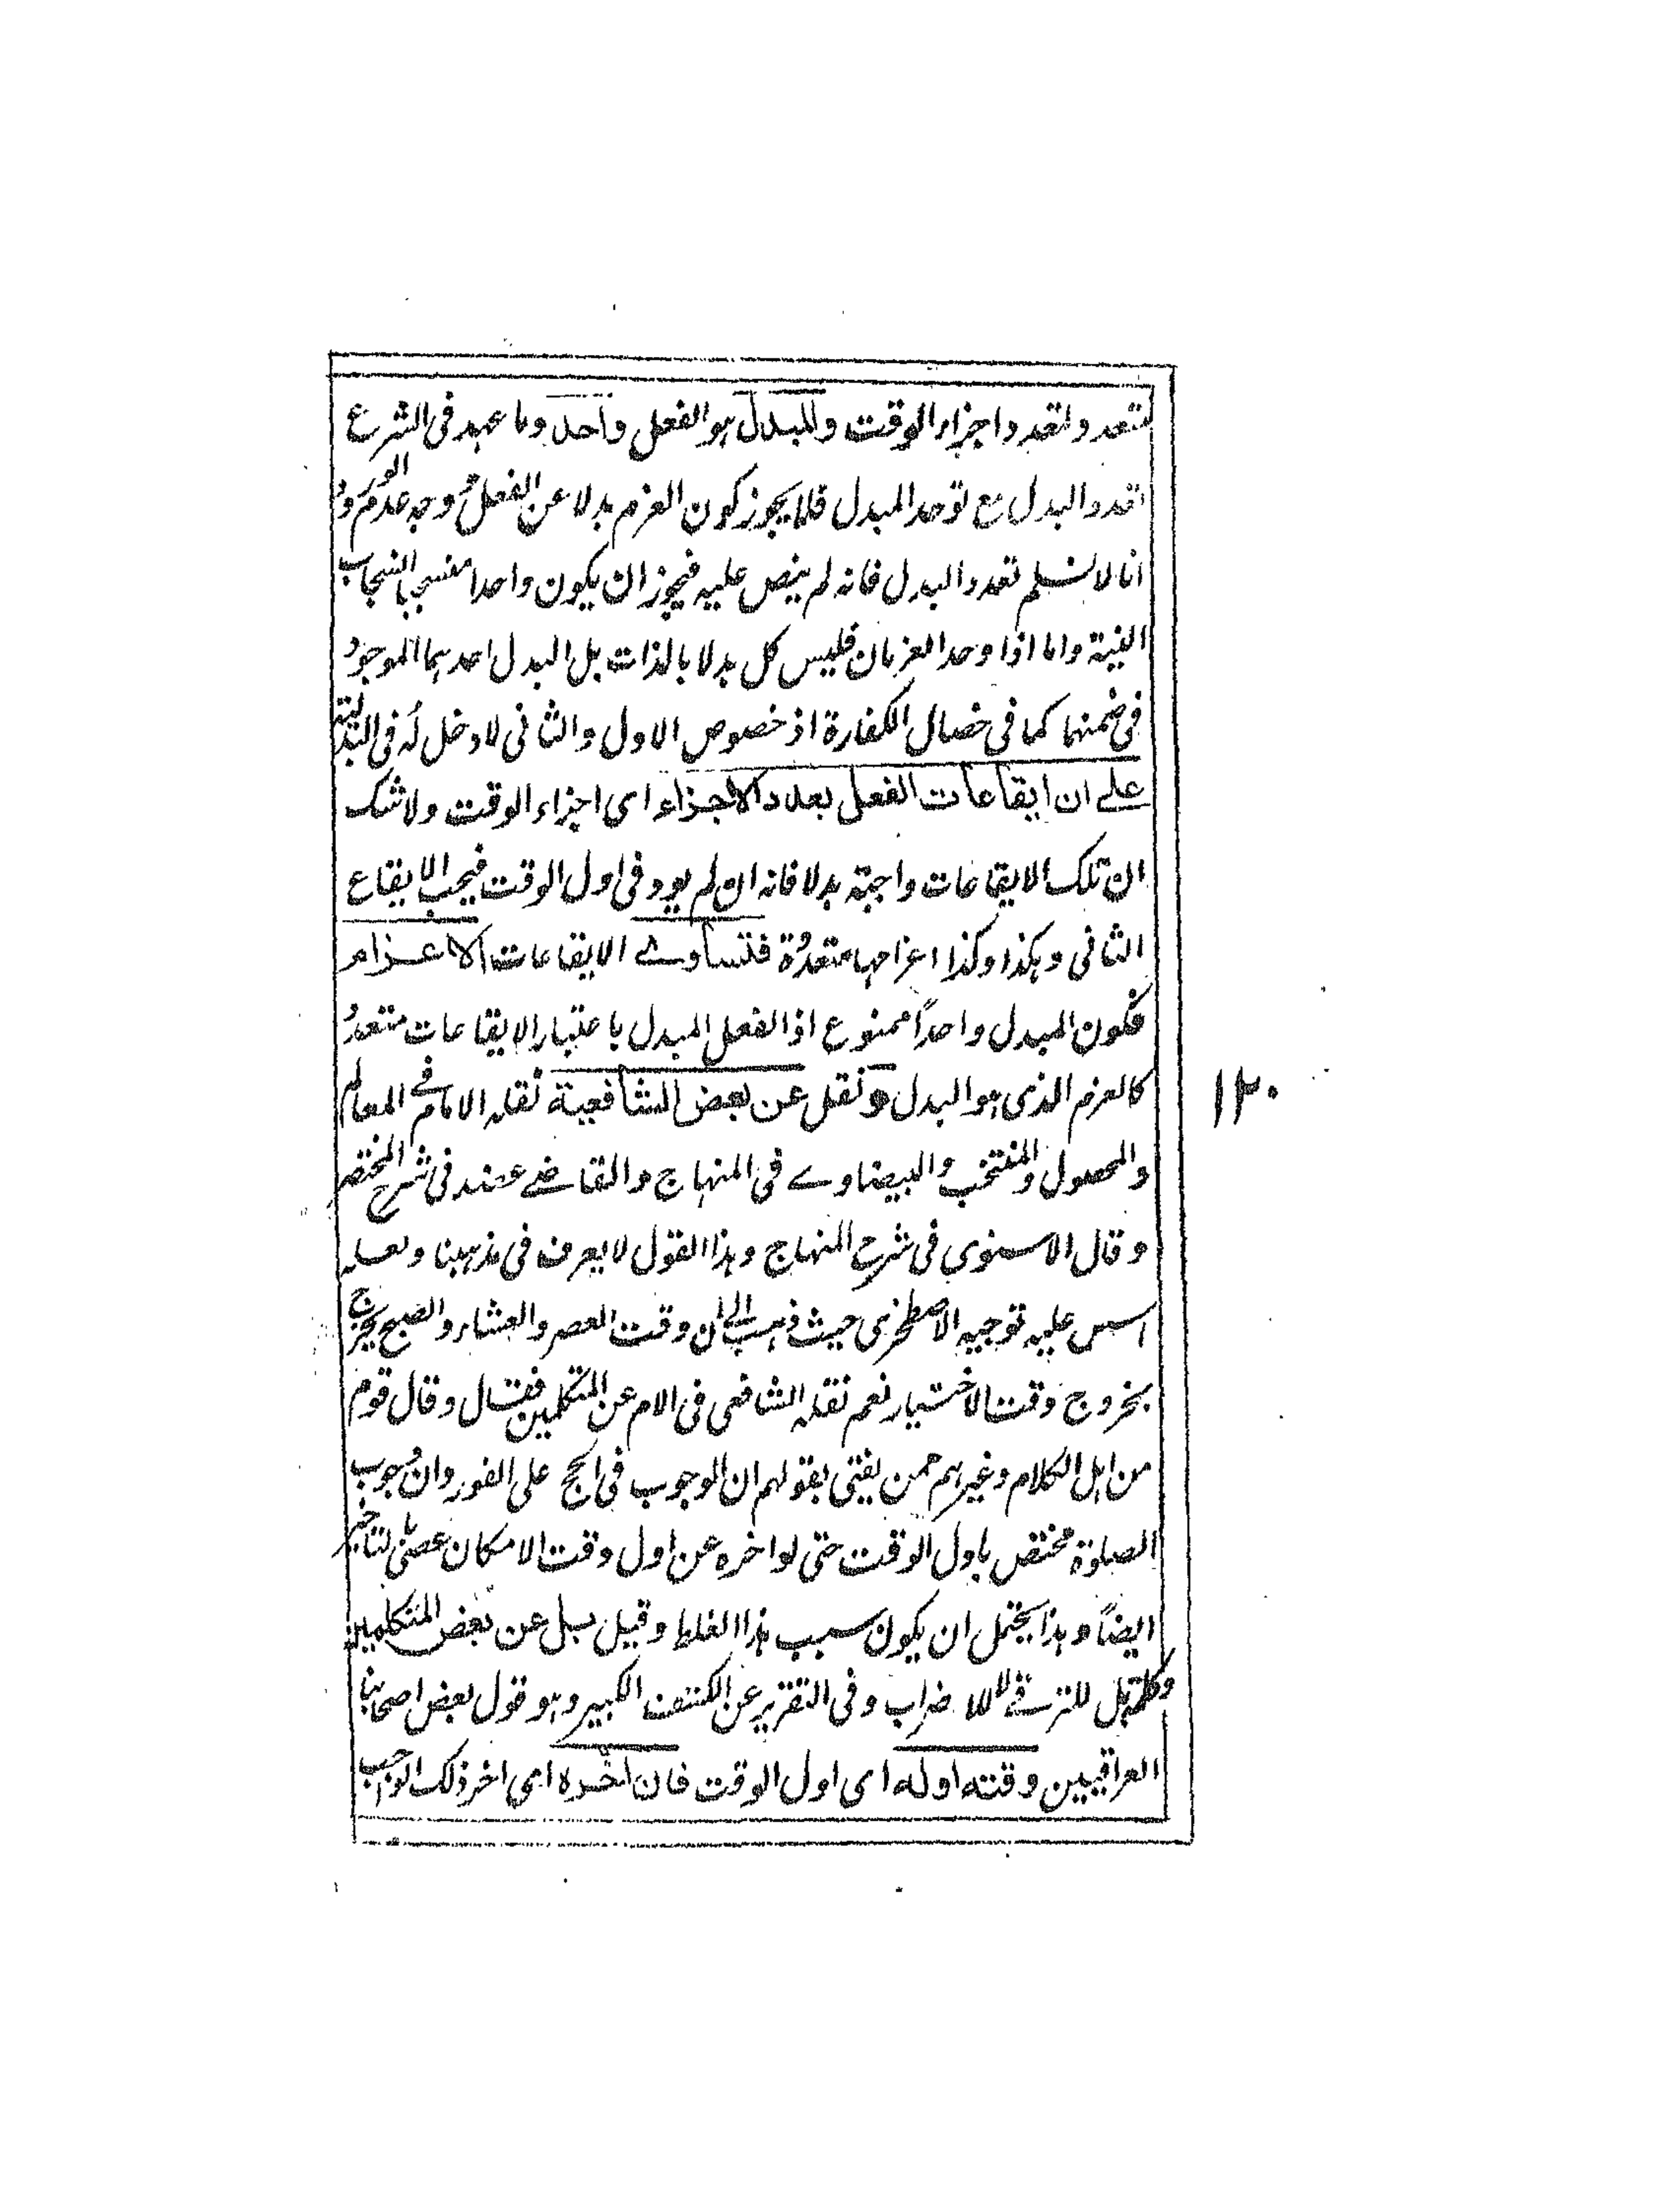 لتعدد اجزاء الوقت والمبدل هو الفعل واحد وما عهد فى الشرع
تعدد البدل مع توحد المبدل فلا يجوز كون العزم بدلا عن الفعل وجه عدم الورود
انا لا نسلم تعدد البدل فانه لم ينص عليه فيجوز ان يكون واحدا منسحبا انسحاب
النية واما اذا وحد العزمان فليس كل بدلا بالذات بل البدل احدهما الموجود
فى ضمنهما كما فى خصال الكفارة اذ خصوص الاول والثانى لا دخل له فى البدلية
على ان ايقاعات الفعل بعدد الاجزاء اى اجزاء الوقت ولا شك
ان تلك الايقاعات واجبة بدلا فانه ان لم يود فى اول الوقت فيجب الايقاع
الثانى وهكذا وكذا اعزامها متعددة فتتساوى الايقاعات الاعزام
فكون المبدل واحداً ممنوع اذ الفعل المبدل باعتبار الايقاعات متعدد
كالعزم الذى هو البدل ونقل عن بعض الشافعية نقله الامام فى المعالم
والمحصول والمنتخب والبيضاوى فى المنهاج والقاضى عضد فى شرح المختصر
وقال الاسنوى فى شرح المنهاج وهذا القول لا يعرف فى مذهبنا ولعله
اسس عليه توجيه الاصطخرى حيث ذهب الى ان وقت العصر والعشاء والصبح يخرج
بخروج وقت الاختيار نعم نقله الشافعى فى الام عن المتكلمين فقال وقال قوم
من اهل الكلام وغيرهم ممن يفتى بقولهم ان الوجوب فى الحج على الفور وان وجوب
الصلوة مختص باول الوقت حتى لو اخره عن اول وقت الامكان عصى بالتاخير
ايضاً وهذا يحتمل ان يكون سبب هذا الغلط وقيل بل عن بعض المتكلمين
وكلمة بل للترقى لا للاضراب وفى التقرير عن الكشف الكبير وهو قول بعض اصحابنا
العراقيين وقته اوله اى اول الوقت فان اخره اى اخر ذلك الواجب
١٢٠